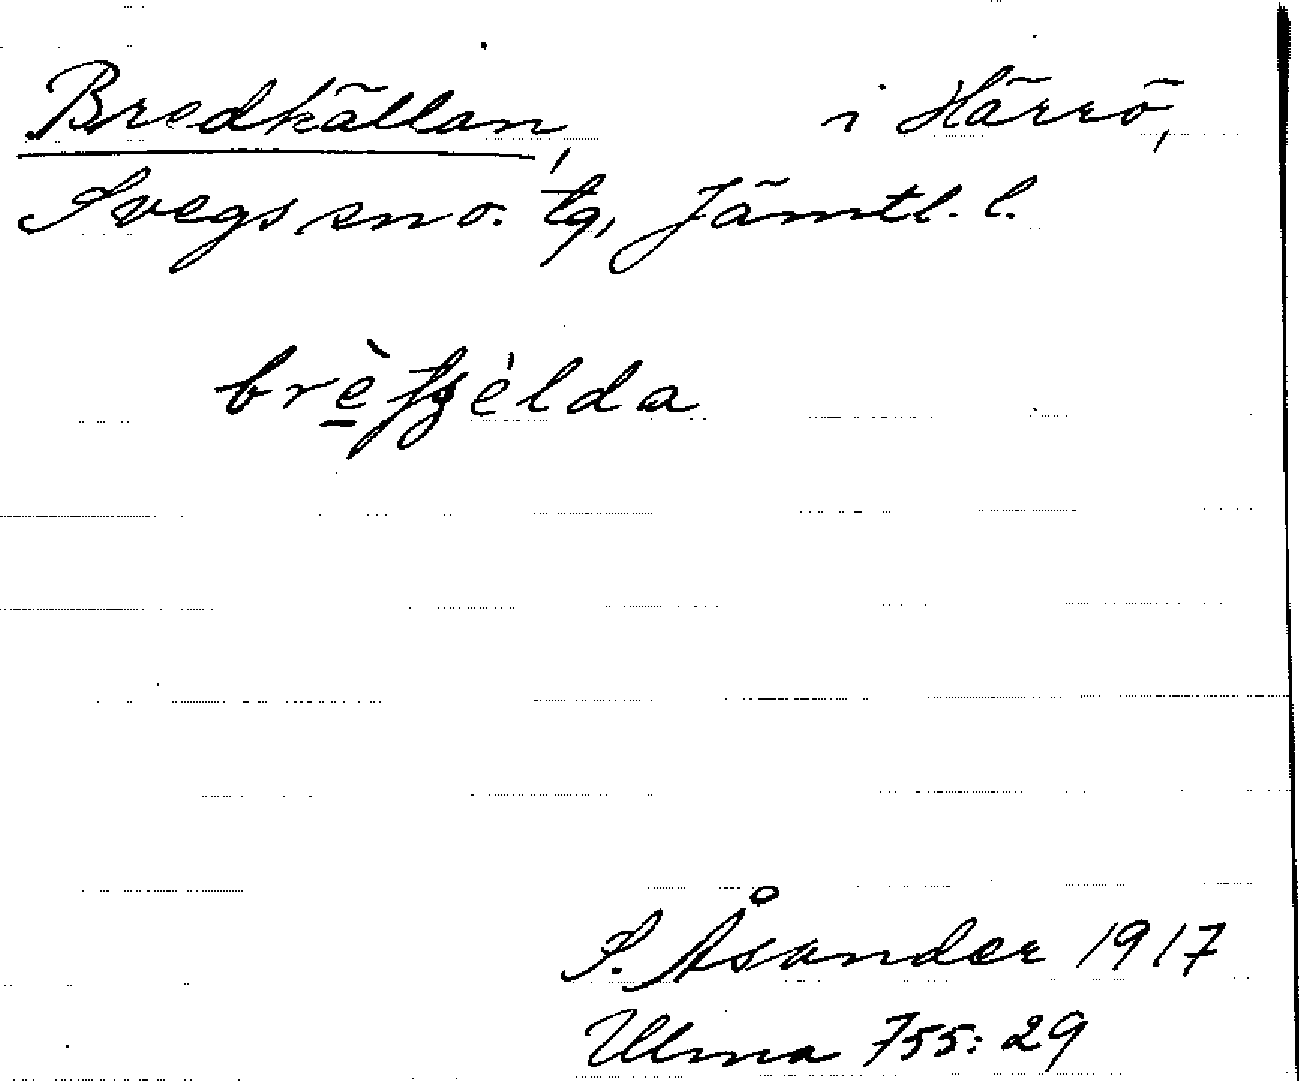 Bredkällan, i Härrö,
Svegs sn o. tg, Jämtl. l.
brèfʒélda
S. Åsander 1917
Ulma 755:29